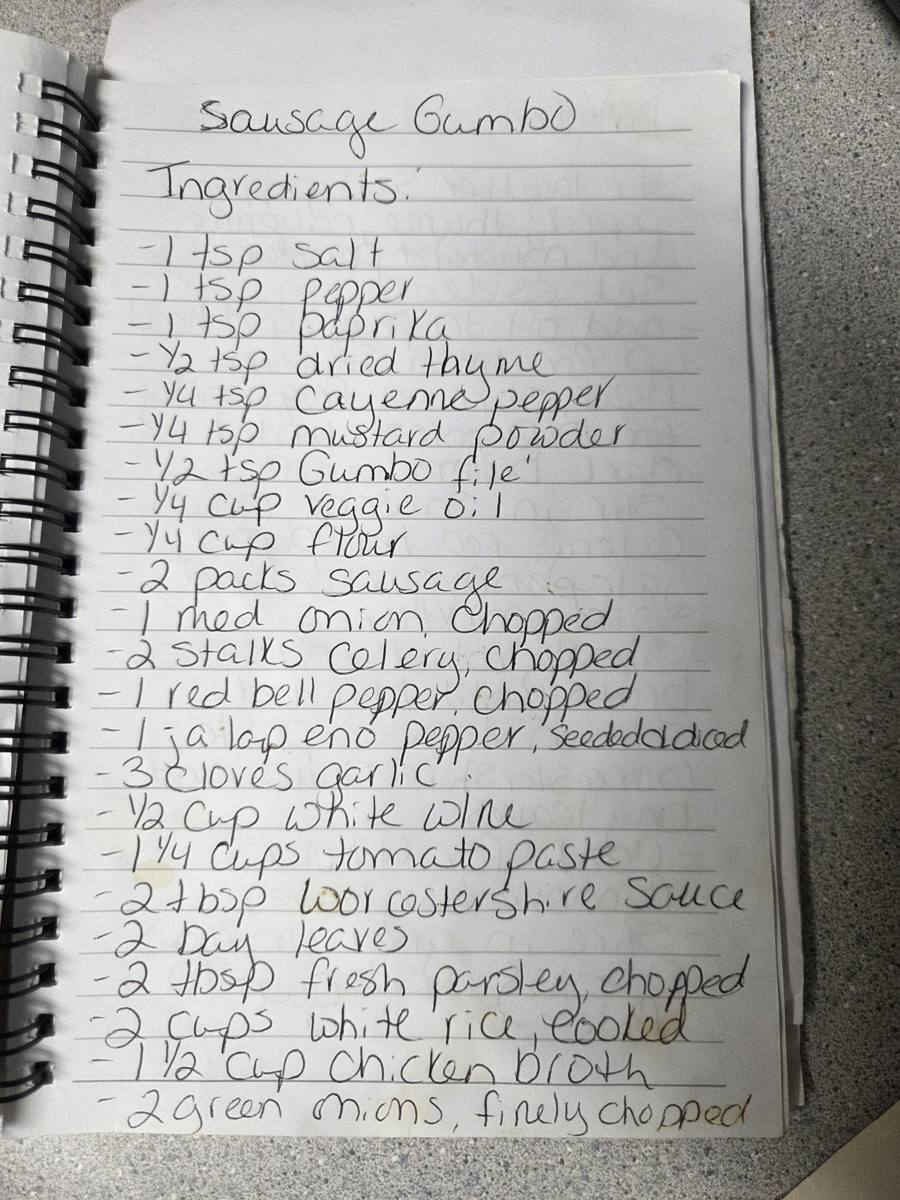 Sausage Gumbo
Ingredients:
-1 tsp salt
-1 tsp pepper
-1 tsp paprika
-1/2 tsp dried thyme
-1/4 tsp cayenne pepper
-1/4 tsp mustard powder
-1/2 tsp Gumbo file'
-1/4 cup veggie oil
-1/4 cup flour
-2 packs sausage
-1 med onion, chopped
-2 stalks celery, chopped
-1 red bell pepper, chopped
-1 jalapeno pepper, seeded diced
-3 cloves garlic
-1/2 cup white wine
-1 1/4 cups tomato paste
-2 tbsp worcestershire sauce
-2 bay leaves
-2 tbsp fresh parsley, chopped
-2 cups white rice, cooked
-1 1/2 cup chicken broth
-2 green onions, finely chopped